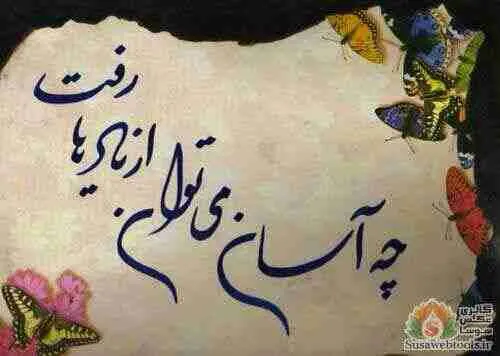 چه آسان می توان از یادها رفت
گالری
عکس
سوسا
Susawebtools.ir